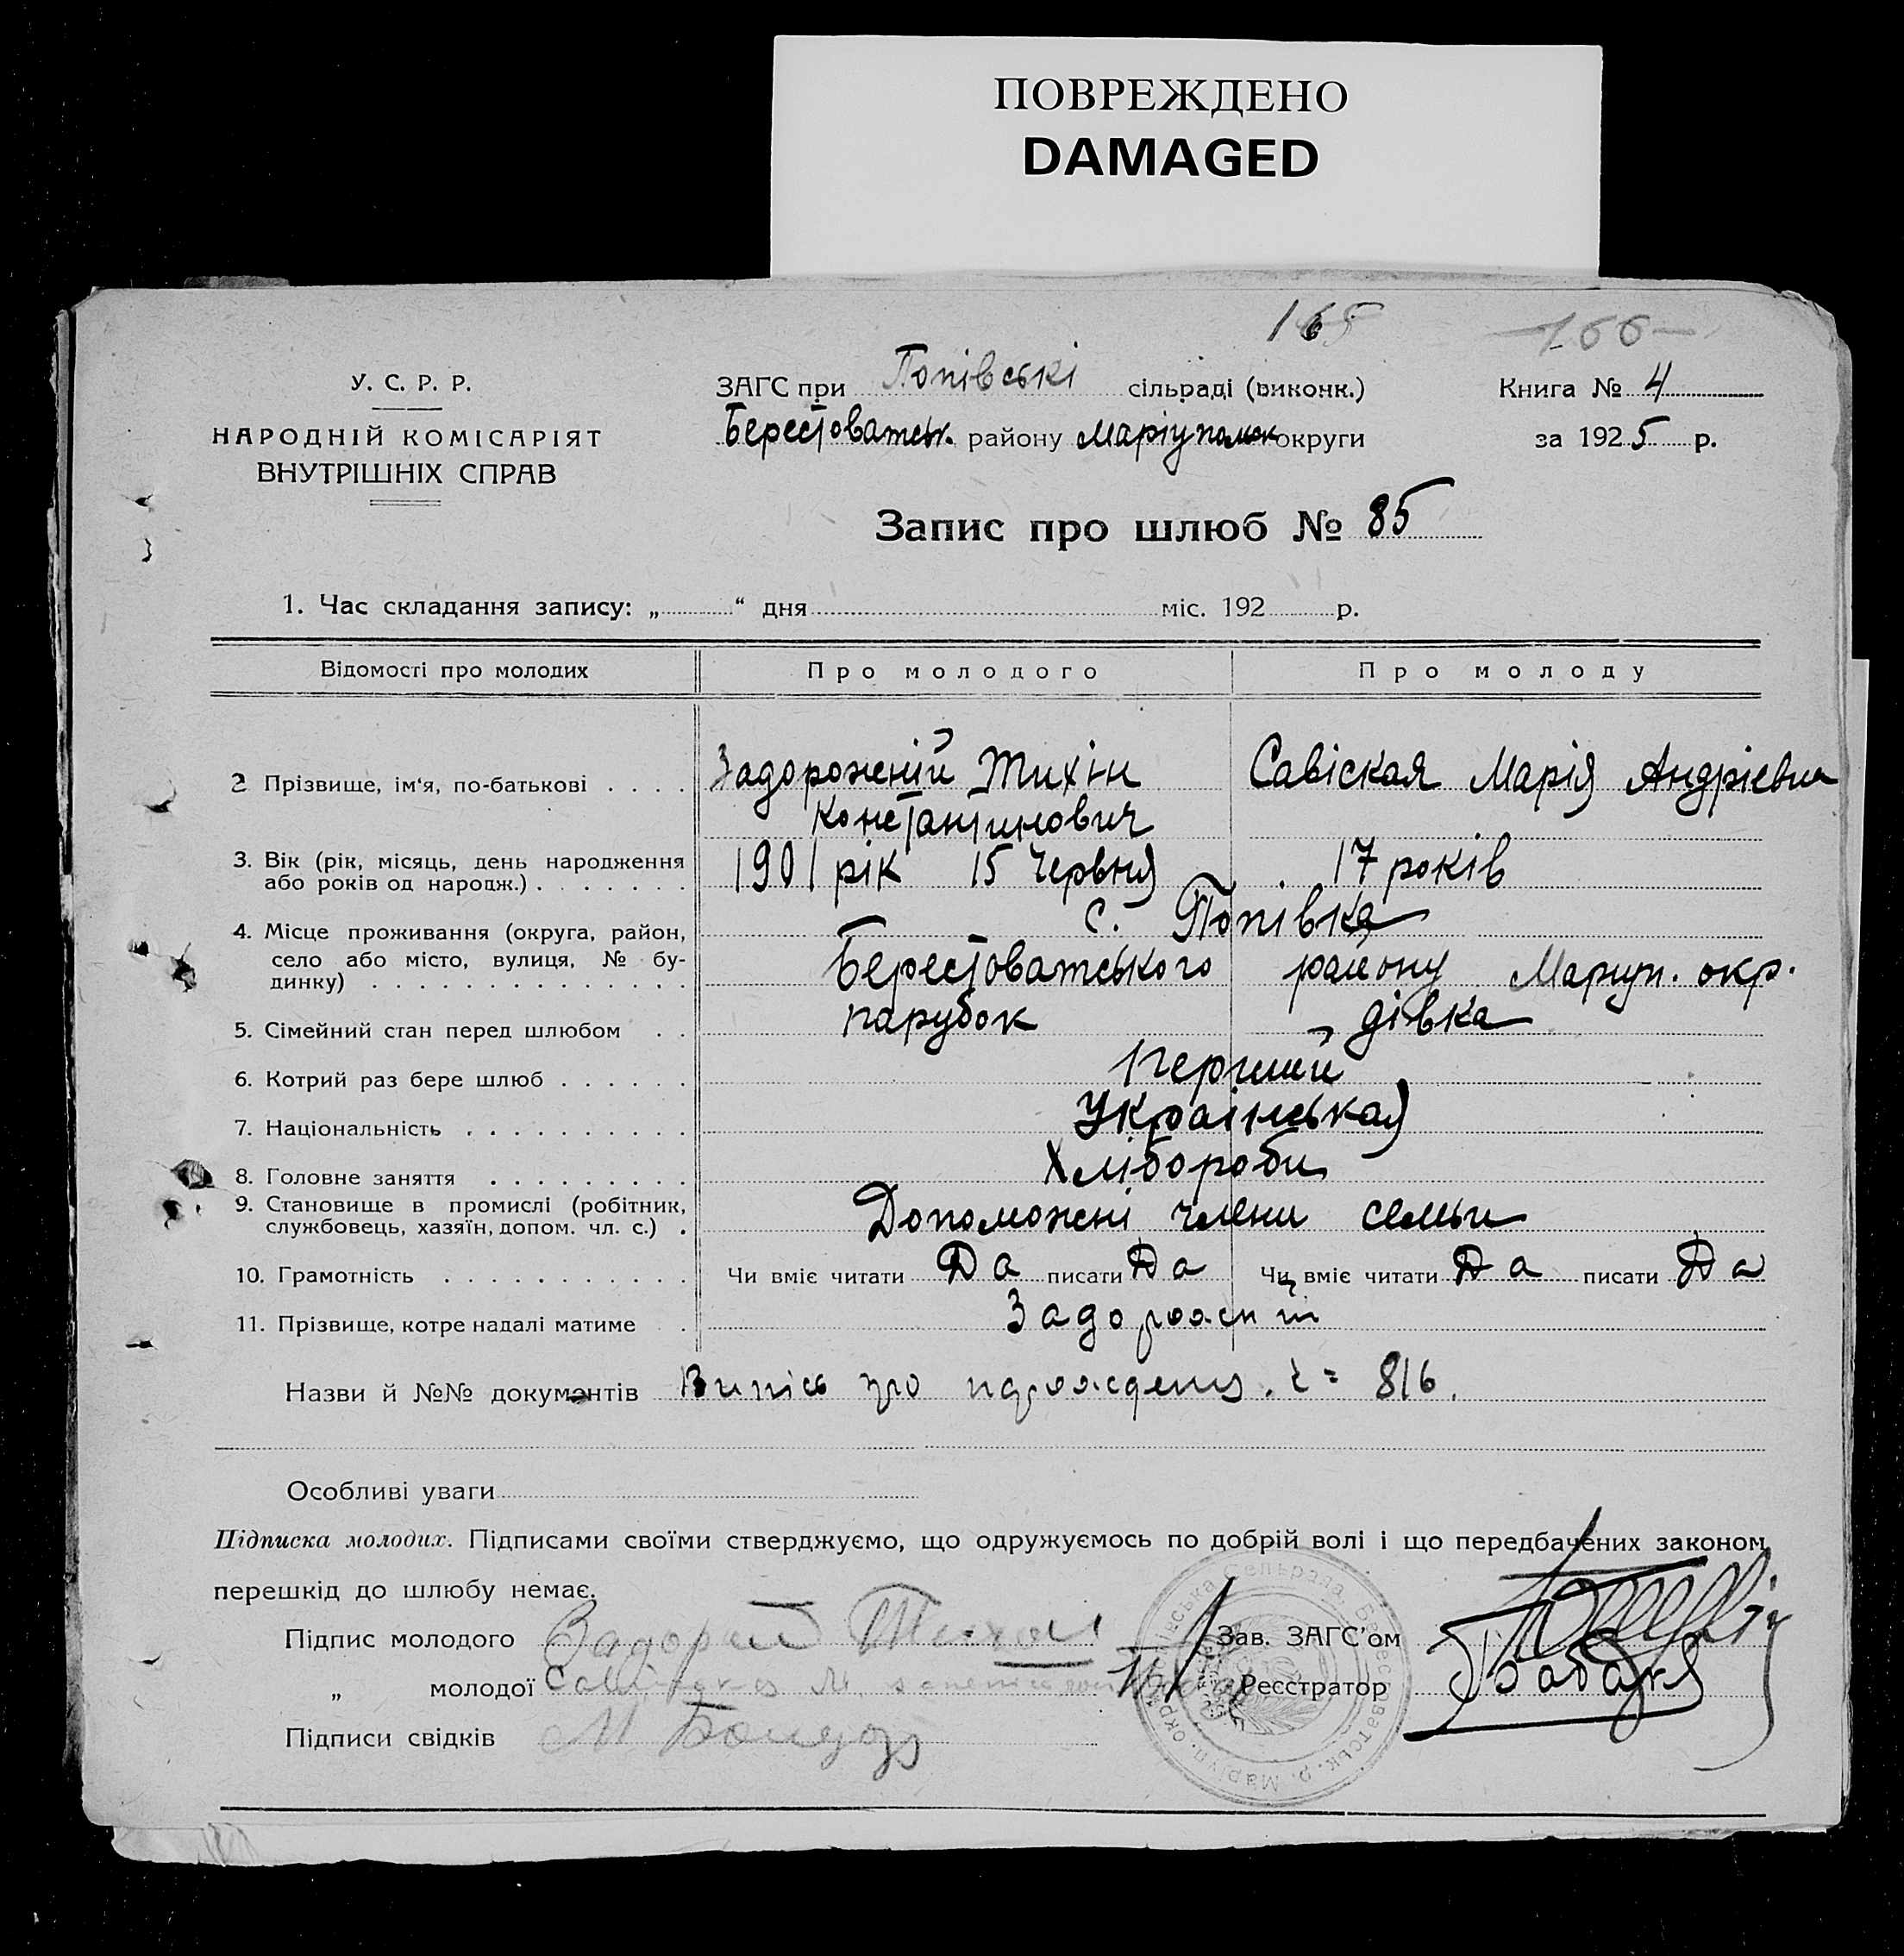 ПОВРЕЖДЕНО
DAMAGED
165
166
У. С. Р. Р.
НАРОДНІЙ КОМІСАРІЯТ
ВНУТРІШНІХ СПРАВ
ЗАГС при Попівські сільраді (виконк.)
Берестоватськ. району Маріуполок округи
Книга № 4
за 1925 р.
Запис про шлюб № 85
1. Час складання запису: „ “ дня міс. 192 р.
Відомості про молодих Про молодого Про молоду
2 Прізвище, ім‘я, по-батькові . . . . Задорожній Тихін Савіская Марія Андрієвна
Константинович
3. Вік (рік, місяць, день народження
або років од народж.) . . . . . . . 1901 рік 15 Червня 17 років
4. Місце проживання (округа, район,
село або місто, вулиця, № бу-
динку) . . . . . . . . . . . . . .
с. Попівка
Берестоватського району Мариуп. окр.
5. Сімейний стан перед шлюбом . . парубок дівка
6. Котрий раз бере шлюб . . . . . . Перший
7. Національність . . . . . . . . . . Українськая
8. Головне заняття . . . . . . . . . Хлібороби
9. Становище в промислі (робітник,
службовець, хазяїн, допом. чл. с.) . Допоможні члени семьи
10. Грамотність . . . . . . . . . . . Чи вміє читати Да писати Да Чи вміє читати Да писати Да
11. Прізвище, котре надалі матиме . Задорожній
Назви й №№ документів Випісь про 816.
Особливі уваги
Підписка молодих. Підписами своїми стверджуємо, що одружуємось по добрій волі і що передбачених законом
перешкід до шлюбу немає.
Підпис молодого Тихон
Зав. ЗАГС’ом
„ молодої
Реєстратор
Підписи свідків М Бондар
Сельрада Берестоватськ. р. Маріуп. окр.